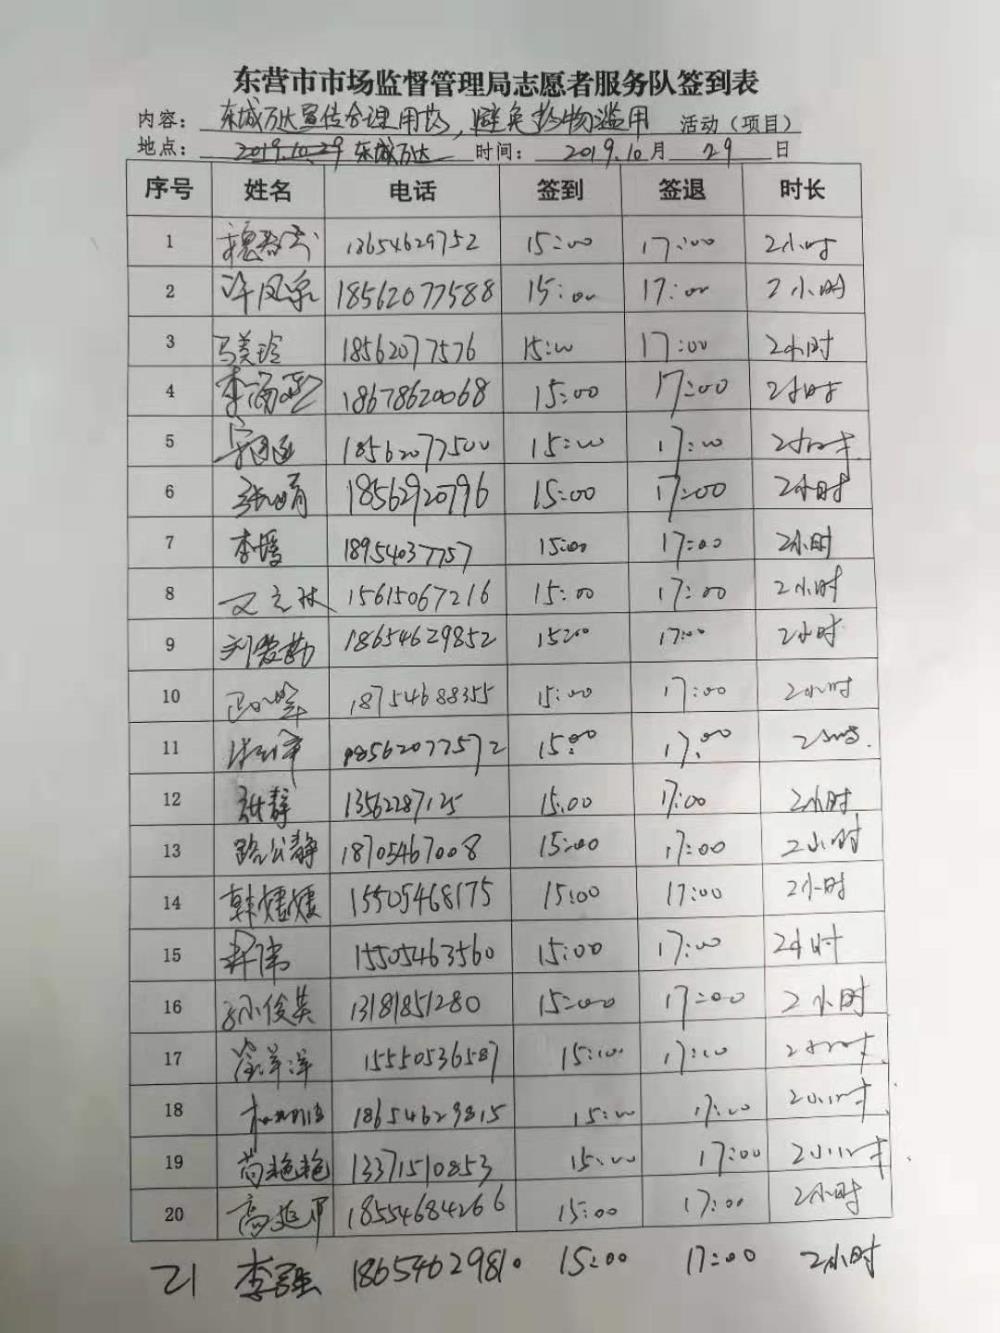 东营市市场监督管理局志愿者服务队签到表
内容：东城万达宣传合理用药，避免药物滥用 活动（项目）
地点：2019.10.29 东城万达 时间：2019.10月29日
序号 姓名 电话 签到 签退 时长
1 13654629752 15:00 17:00 2小时
2 许凤泉 18562077588 15:00 17:00 2小时
3 马美玲 18562077576 15:00 17:00 2小时
4 李海燕 18678620068 15:00 17:00 2小时
5 18562077500 15:00 17:00 2小时
6 张晴 18562920796 15:00 17:00 2小时
7 李媛 18954037757 15:00 17:00 2小时
8 15615067216 15:00 17:00 2小时
9 刘爱勤 18654629852 15:00 17:00 2小时
10 18754688355 15:00 17:00 2小时
11 18562077572 15:00 17:00 2小时
12 张静 13562287125 15:00 17:00 2小时
13 路公静 18705467008 15:00 17:00 2小时
14 韩媛媛 15505468175 15:00 17:00 2小时
15 15505463560 15:00 17:00 2小时
16 孙俊英 13181851280 15:00 17:00 2小时
17 15550536587 15:00 17:00 2小时
18 18654629815 15:00 17:00 2小时
19 苟艳艳 13371510853 15:00 17:00 2小时
20 高延军 18554684266 15:00 17:00 2小时
21 李强 18654629810 15:00 17:00 2小时